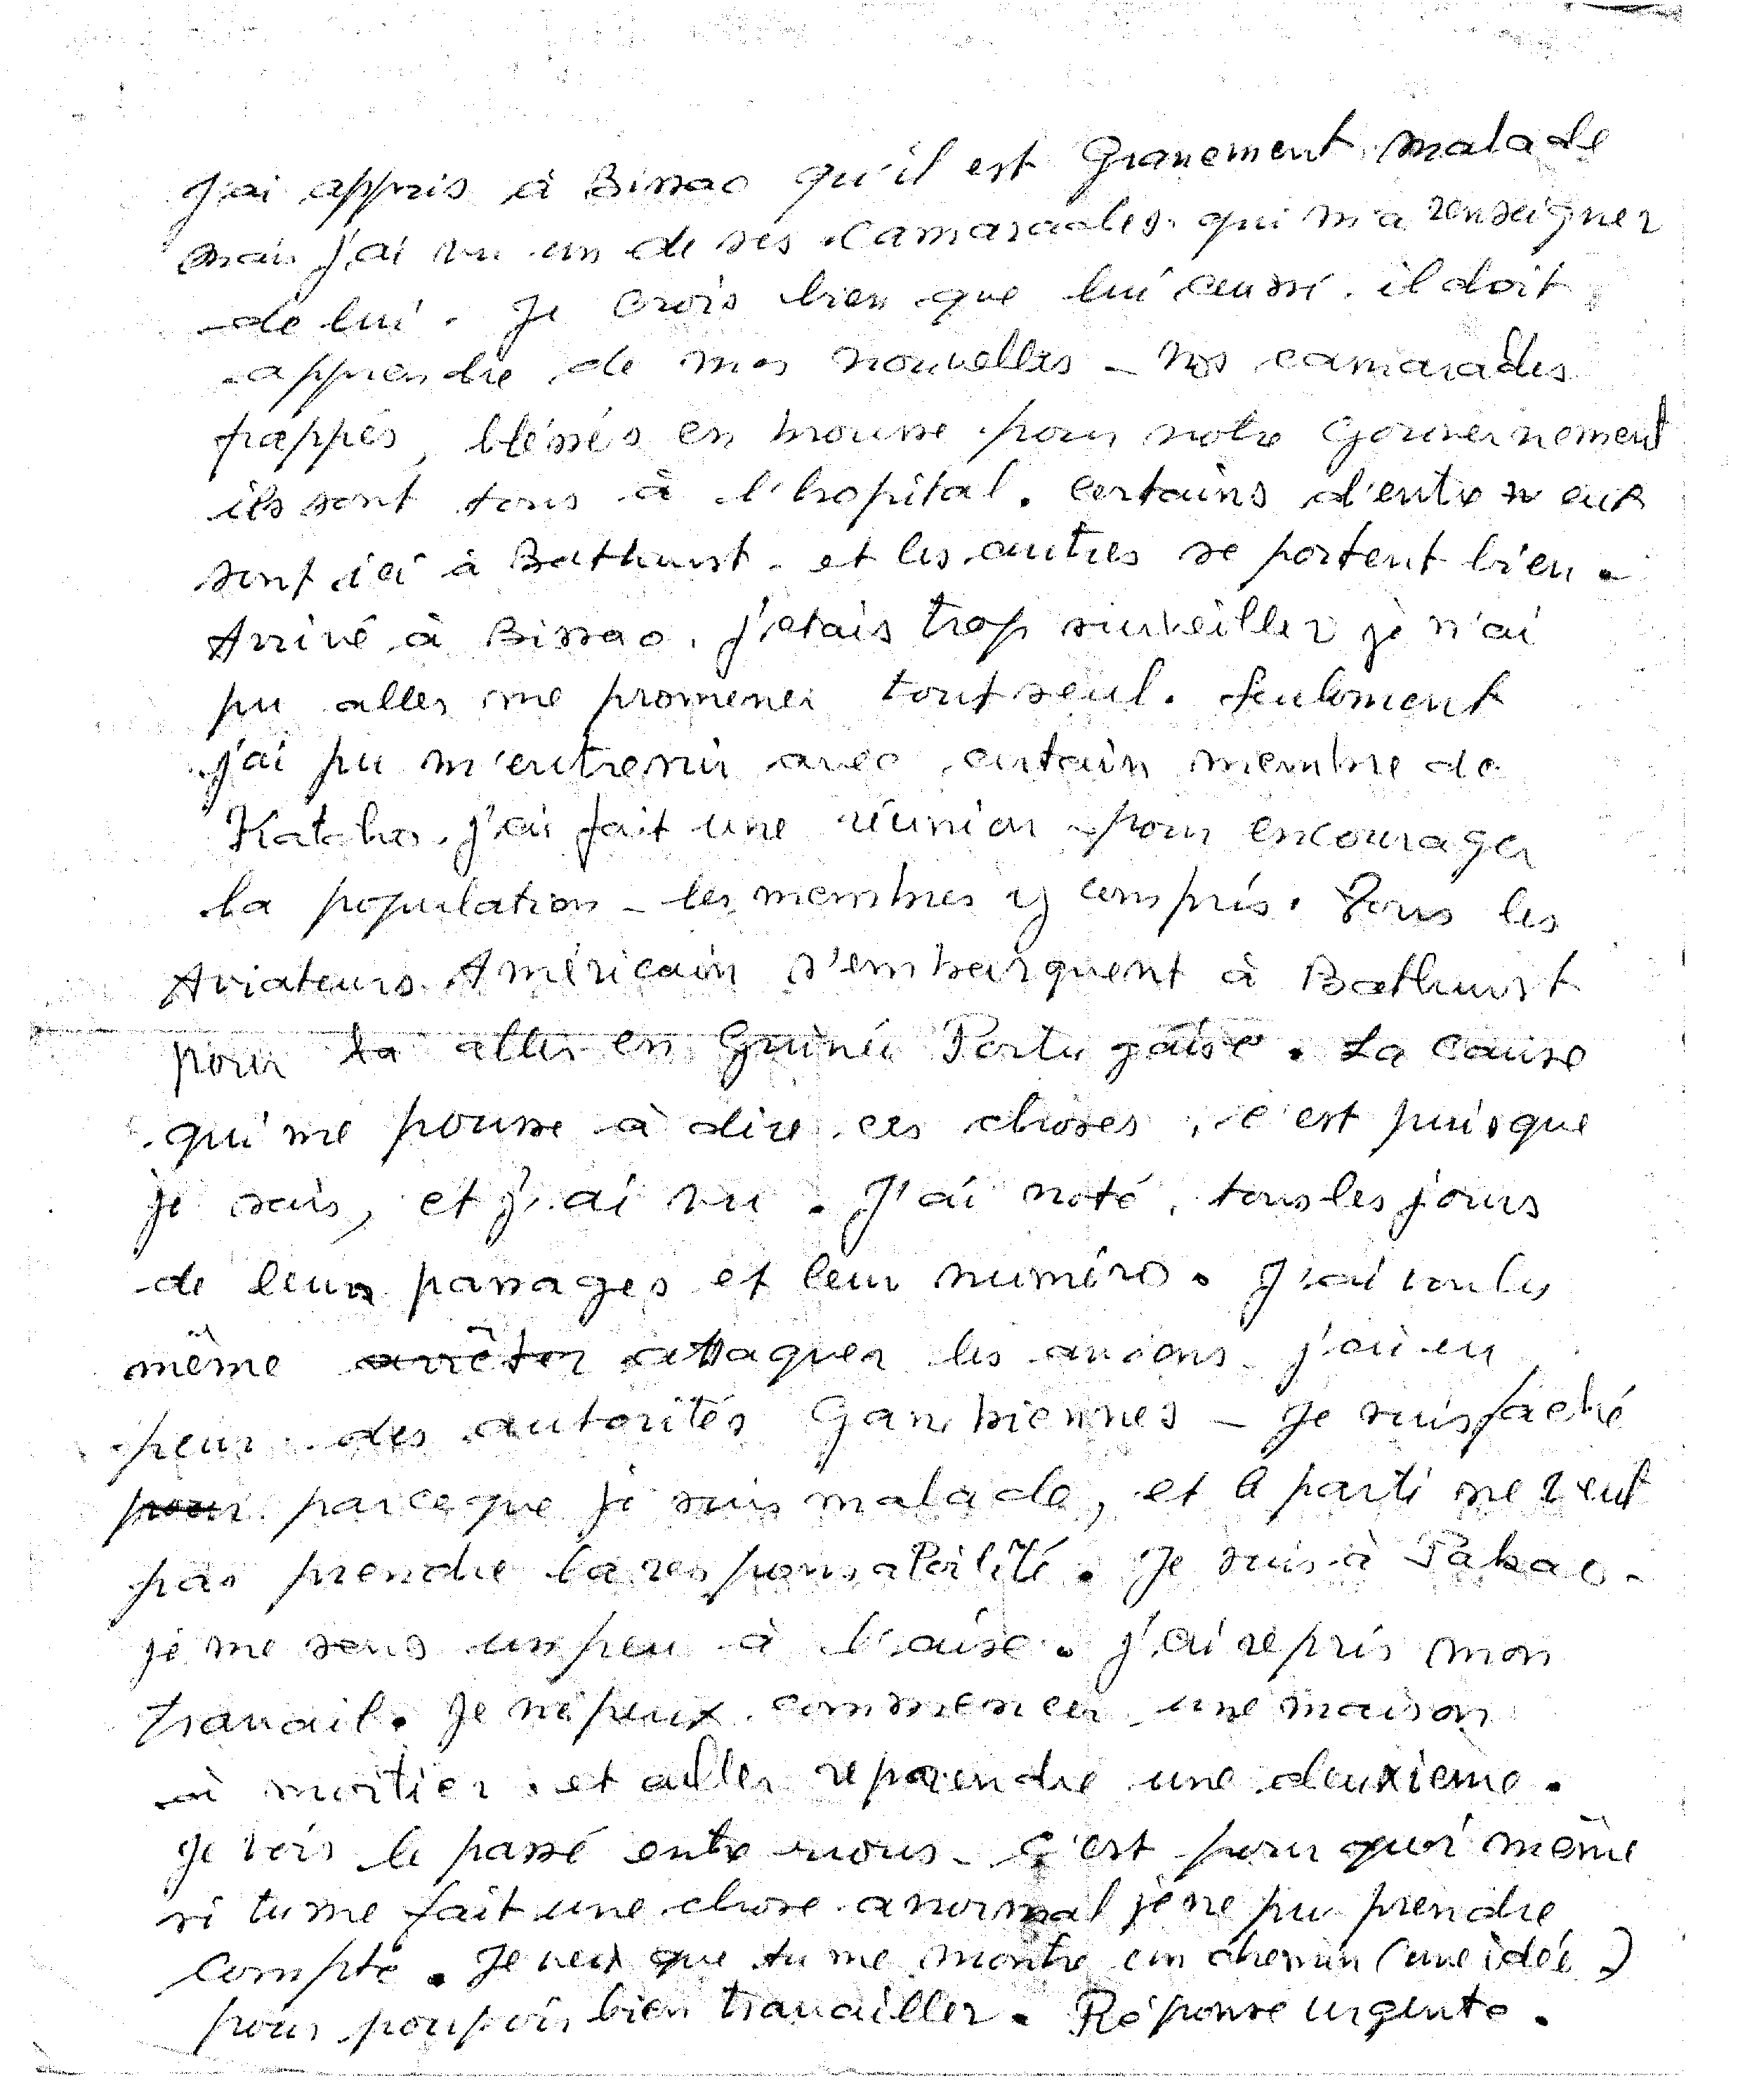 J'ai appris à Bissao qu'il est Gravement malade
mais j'ai vu un de ses camarades qui m'a renseigner
de lui. Je crois bien que lui aussi il doit
apprendre de mes nouvelles - Nos camarades
frappés, bléssés en brousse pour notre Gouvernement
ils sont tous à l'hopital. certains d'entre eux
sont ici à Bathurst - et les autres se portent bien.
Arrivé à Bissao, j'etais trop surveiller je n'ai
pu aller me promener tout seul. Seulement
j'ai pu m'entrenir avec certain membre de
Katcho. j'ai fait une réunion pour encourager
la population - les membres y compris. Tous les
Aviateurs Américain s'embarquent à Bathurst
pour la aller en Guinée Portugaise. La cause
qui me pousse à dire ces choses, c'est puisque
je sais, et j'ai vu. J'ai noté, tous les jours
de leur passages et leur numéro. J'ai voulu
même arrêter attaquer les avions j'ai eu
peur des autorités Gambiennes - Je suis faché
pour parceque je suis malade, et le parti ne veut
pas prendre la responsabilité. Je suis à Pabao -
je me sens un peu à l'aise. j'ai repris mon
travail. Je ne peux commencer une maison
à mortier et aller reprendre une deuxième.
Je vois le passé entre nous - C'est pour quoi même
si tu me fait une chose anormal je ne pu prendre
compte. Je veux que tu me montre un chemin (une idée)
pour pouvoir bien travailler. Réponse urgente.